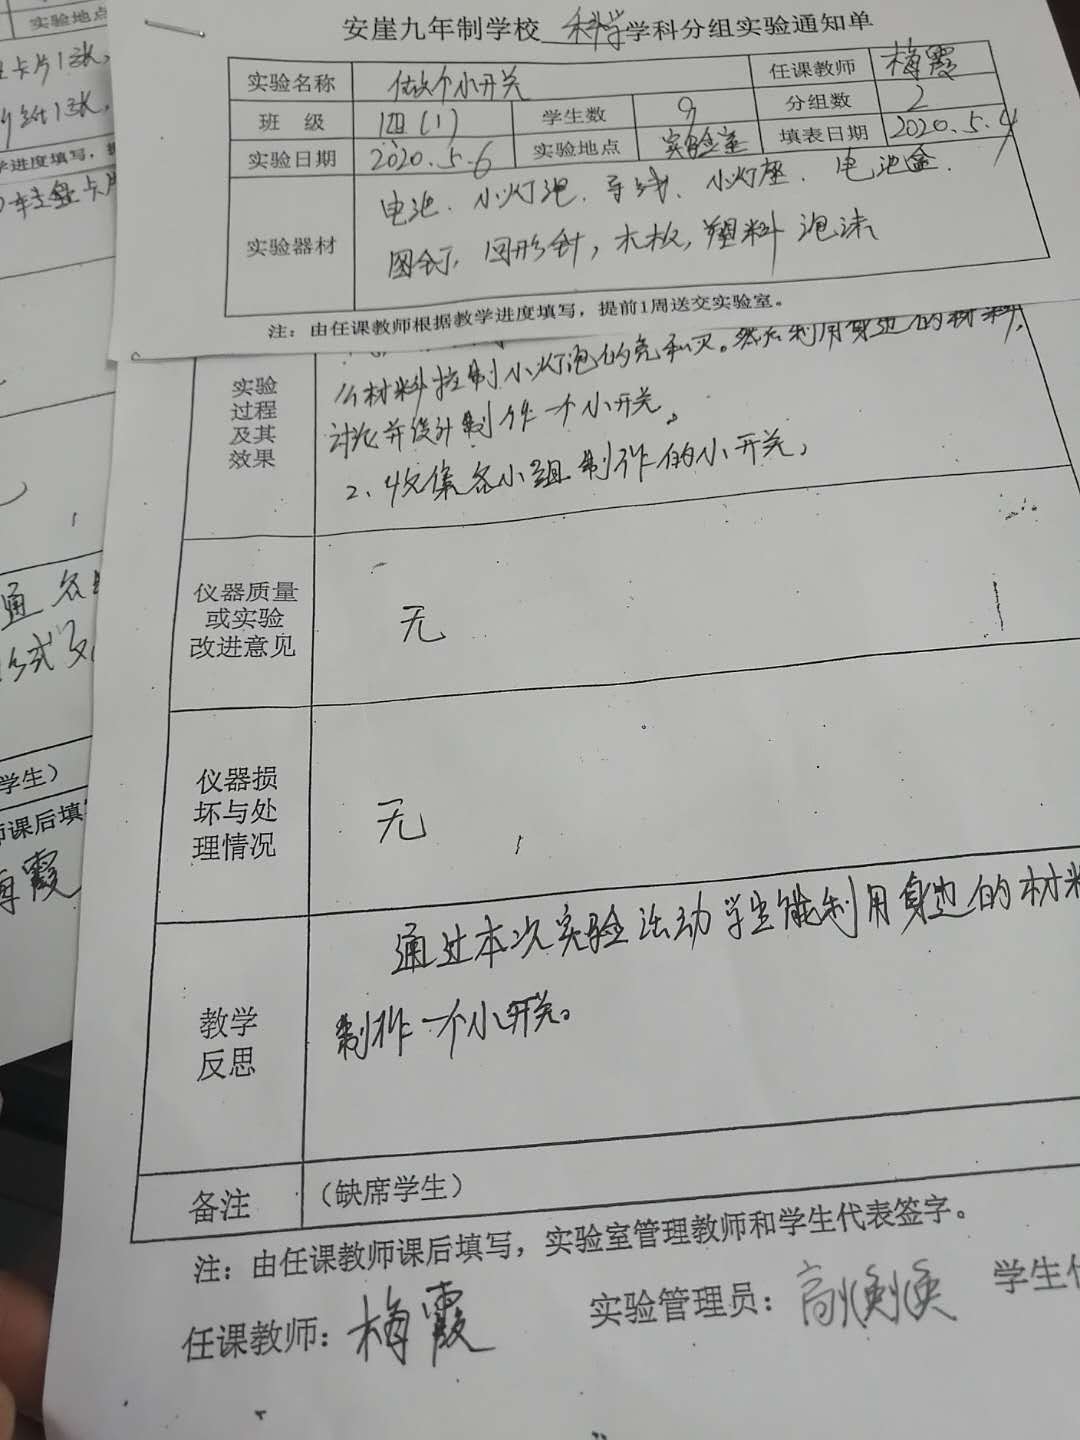 安崖九年制学校 科学 学科分组实验通知单
实验名称 做个小开关 任课教师 梅霞
班 级 四(1) 学生数 9 分组数 2
实验日期 2020.5.6 实验地点 实验室 填表日期 2020.5.4
实验器材 电池、小灯泡、导线、小灯座、电池盒、
图钉、回形针，木板，塑料泡沫
注：由任课教师根据教学进度填写，提前1周送交实验室。
实验过程及其效果
么材料控制小灯泡的亮和灭。然后利用身边的材料，
讨论并设计制作一个小开关。
2、收集各小组制作的小开关，
仪器质量或实验改进意见 无
仪器损坏与处理情况 无
教学反思 通过本次实验活动学生能利用身边的材料
制作一个小开关。
备注 （缺席学生）
注：由任课教师课后填写，实验室管理教师和学生代表签字。
任课教师：梅霞 实验管理员： 学生
实验地点
卡片1张，
学进度填写，
通
学生）
师课后填
梅霞